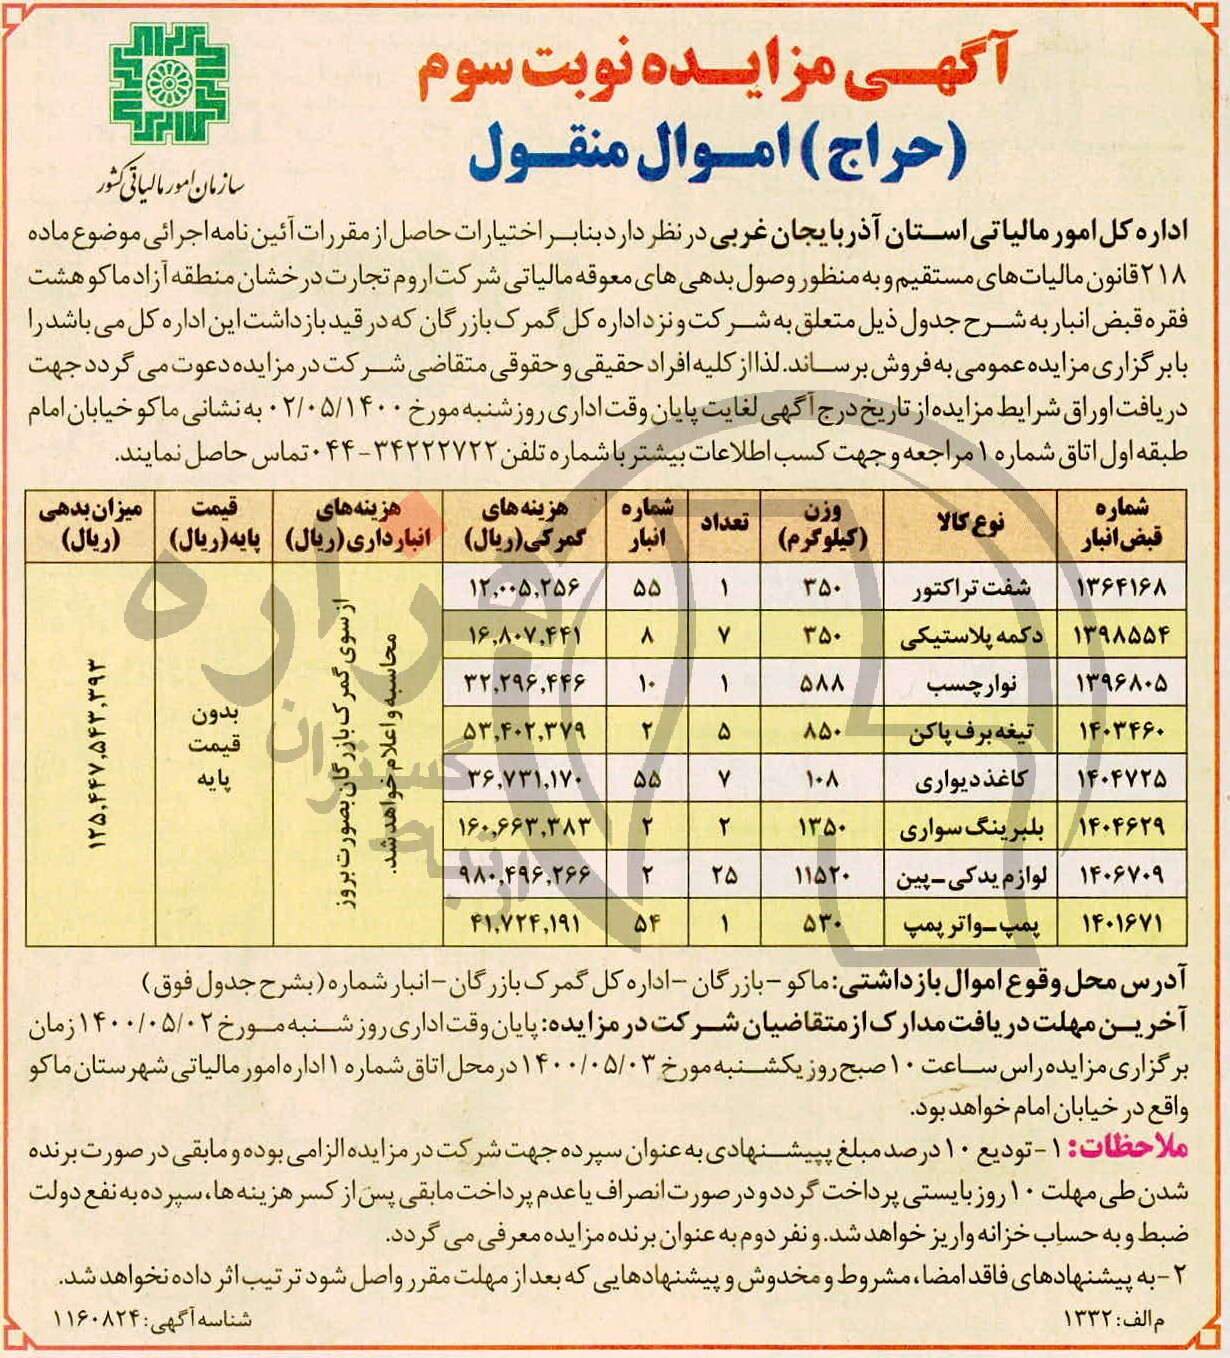 آگهی مزایده نوبت سوم
(حراج) اموال منقول
سازمان امور مالیاتی کشور
اداره کل امور مالیاتی استان آذربایجان غربی در نظر دارد بنابر اختیارات حاصل از مقررات آئین نامه اجرائی موضوع ماده
۲۱۸ قانون مالیات‌های مستقیم و به منظور وصول بدهی های معوقه مالیاتی شرکت اروم تجارت درخشان منطقه آزاد ماکو هشت
فقره قبض انبار به شرح جدول ذیل متعلق به شرکت و نزد اداره کل گمرک بازرگان که در قید بازداشت این اداره کل می باشد را
با برگزاری مزایده عمومی به فروش برساند. لذا از کلیه افراد حقیقی و حقوقی متقاضی شرکت در مزایده دعوت می گردد جهت
دریافت اوراق شرایط مزایده از تاریخ درج آگهی لغایت پایان وقت اداری روز شنبه مورخ ۰۲/۰۵/۱۴۰۰ به نشانی ماکو خیابان امام
طبقه اول اتاق شماره ۱ مراجعه و جهت کسب اطلاعات بیشتر با شماره تلفن ۳۴۲۲۲۷۲۲-۰۴۴ تماس حاصل نمایند.
شماره قبض انبار نوع کالا وزن (کیلوگرم) تعداد شماره انبار هزینه‌های گمرکی (ریال) هزینه‌های انبارداری (ریال) قیمت پایه (ریال) میزان بدهی (ریال)
۱۳۶۴۱۶۸ شفت تراکتور ۳۵۰ ۱ ۵۵ ۱۲,۰۰۵,۲۵۶
۱۳۹۸۵۵۴ دکمه پلاستیکی ۳۵۰ ۷ ۸ ۱۶,۸۰۷,۴۴۱
۱۳۹۶۸۰۵ نوار چسب ۵۸۸ ۱ ۱۰ ۳۲,۲۹۶,۴۴۶
۱۴۰۳۴۶۰ تیغه برف پاکن ۸۵۰ ۵ ۲ ۵۳,۴۰۲,۳۷۹
۱۴۰۴۷۲۵ کاغذ دیواری ۱۰۸ ۷ ۵۵ ۳۶,۷۳۱,۱۷۰
۱۴۰۴۶۲۹ بلبرینگ سواری ۱۳۵۰ ۲ ۲ ۱۶۰,۶۶۳,۳۸۳
۱۴۰۶۷۰۹ لوازم یدکی - پین ۱۱۵۲۰ ۲۵ ۲ ۹۸۰,۴۹۶,۲۶۶
۱۴۰۱۶۷۱ پمپ - واتر پمپ ۵۳۰ ۱ ۵۴ ۴۱,۷۲۴,۱۹۱
از سوی گمرک بازرگان بصورت بروز
محاسبه و اعلام خواهد شد.
بدون
قیمت
پایه
۱۲۵,۴۴۷,۵۴۳,۳۹۳
آدرس محل وقوع اموال بازداشتی: ماکو - بازرگان - اداره کل گمرک بازرگان - انبار شماره (بشرح جدول فوق)
آخرین مهلت دریافت مدارک از متقاضیان شرکت در مزایده: پایان وقت اداری روز شنبه مورخ ۱۴۰۰/۰۵/۰۲ زمان
برگزاری مزایده راس ساعت ۱۰ صبح روز یکشنبه مورخ ۱۴۰۰/۰۵/۰۳ در محل اتاق شماره ۱ اداره امور مالیاتی شهرستان ماکو
واقع در خیابان امام خواهد بود.
ملاحظات: ۱- تودیع ۱۰ درصد مبلغ پیشنهادی به عنوان سپرده جهت شرکت در مزایده الزامی بوده و مابقی در صورت برنده
شدن طی مهلت ۱۰ روز بایستی پرداخت گردد و در صورت انصراف یا عدم پرداخت مابقی پس از کسر هزینه ها، سپرده به نفع دولت
ضبط و به حساب خزانه واریز خواهد شد. و نفر دوم به عنوان برنده مزایده معرفی می گردد.
۲- به پیشنهادهای فاقد امضا، مشروط و مخدوش و پیشنهادهایی که بعد از مهلت مقرر واصل شود ترتیب اثر داده نخواهد شد.
م الف: ۱۳۳۲
شناسه آگهی: ۱۱۶۰۸۲۴